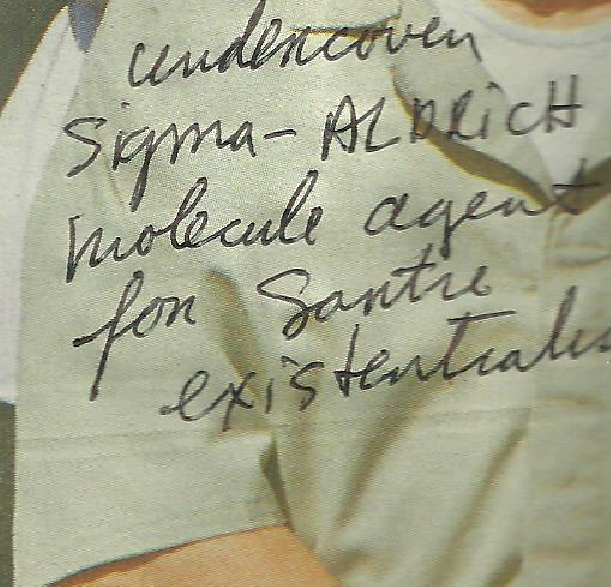 undercover
Sigma-ALDRicH
molecule agent
for Sartre
existentialis